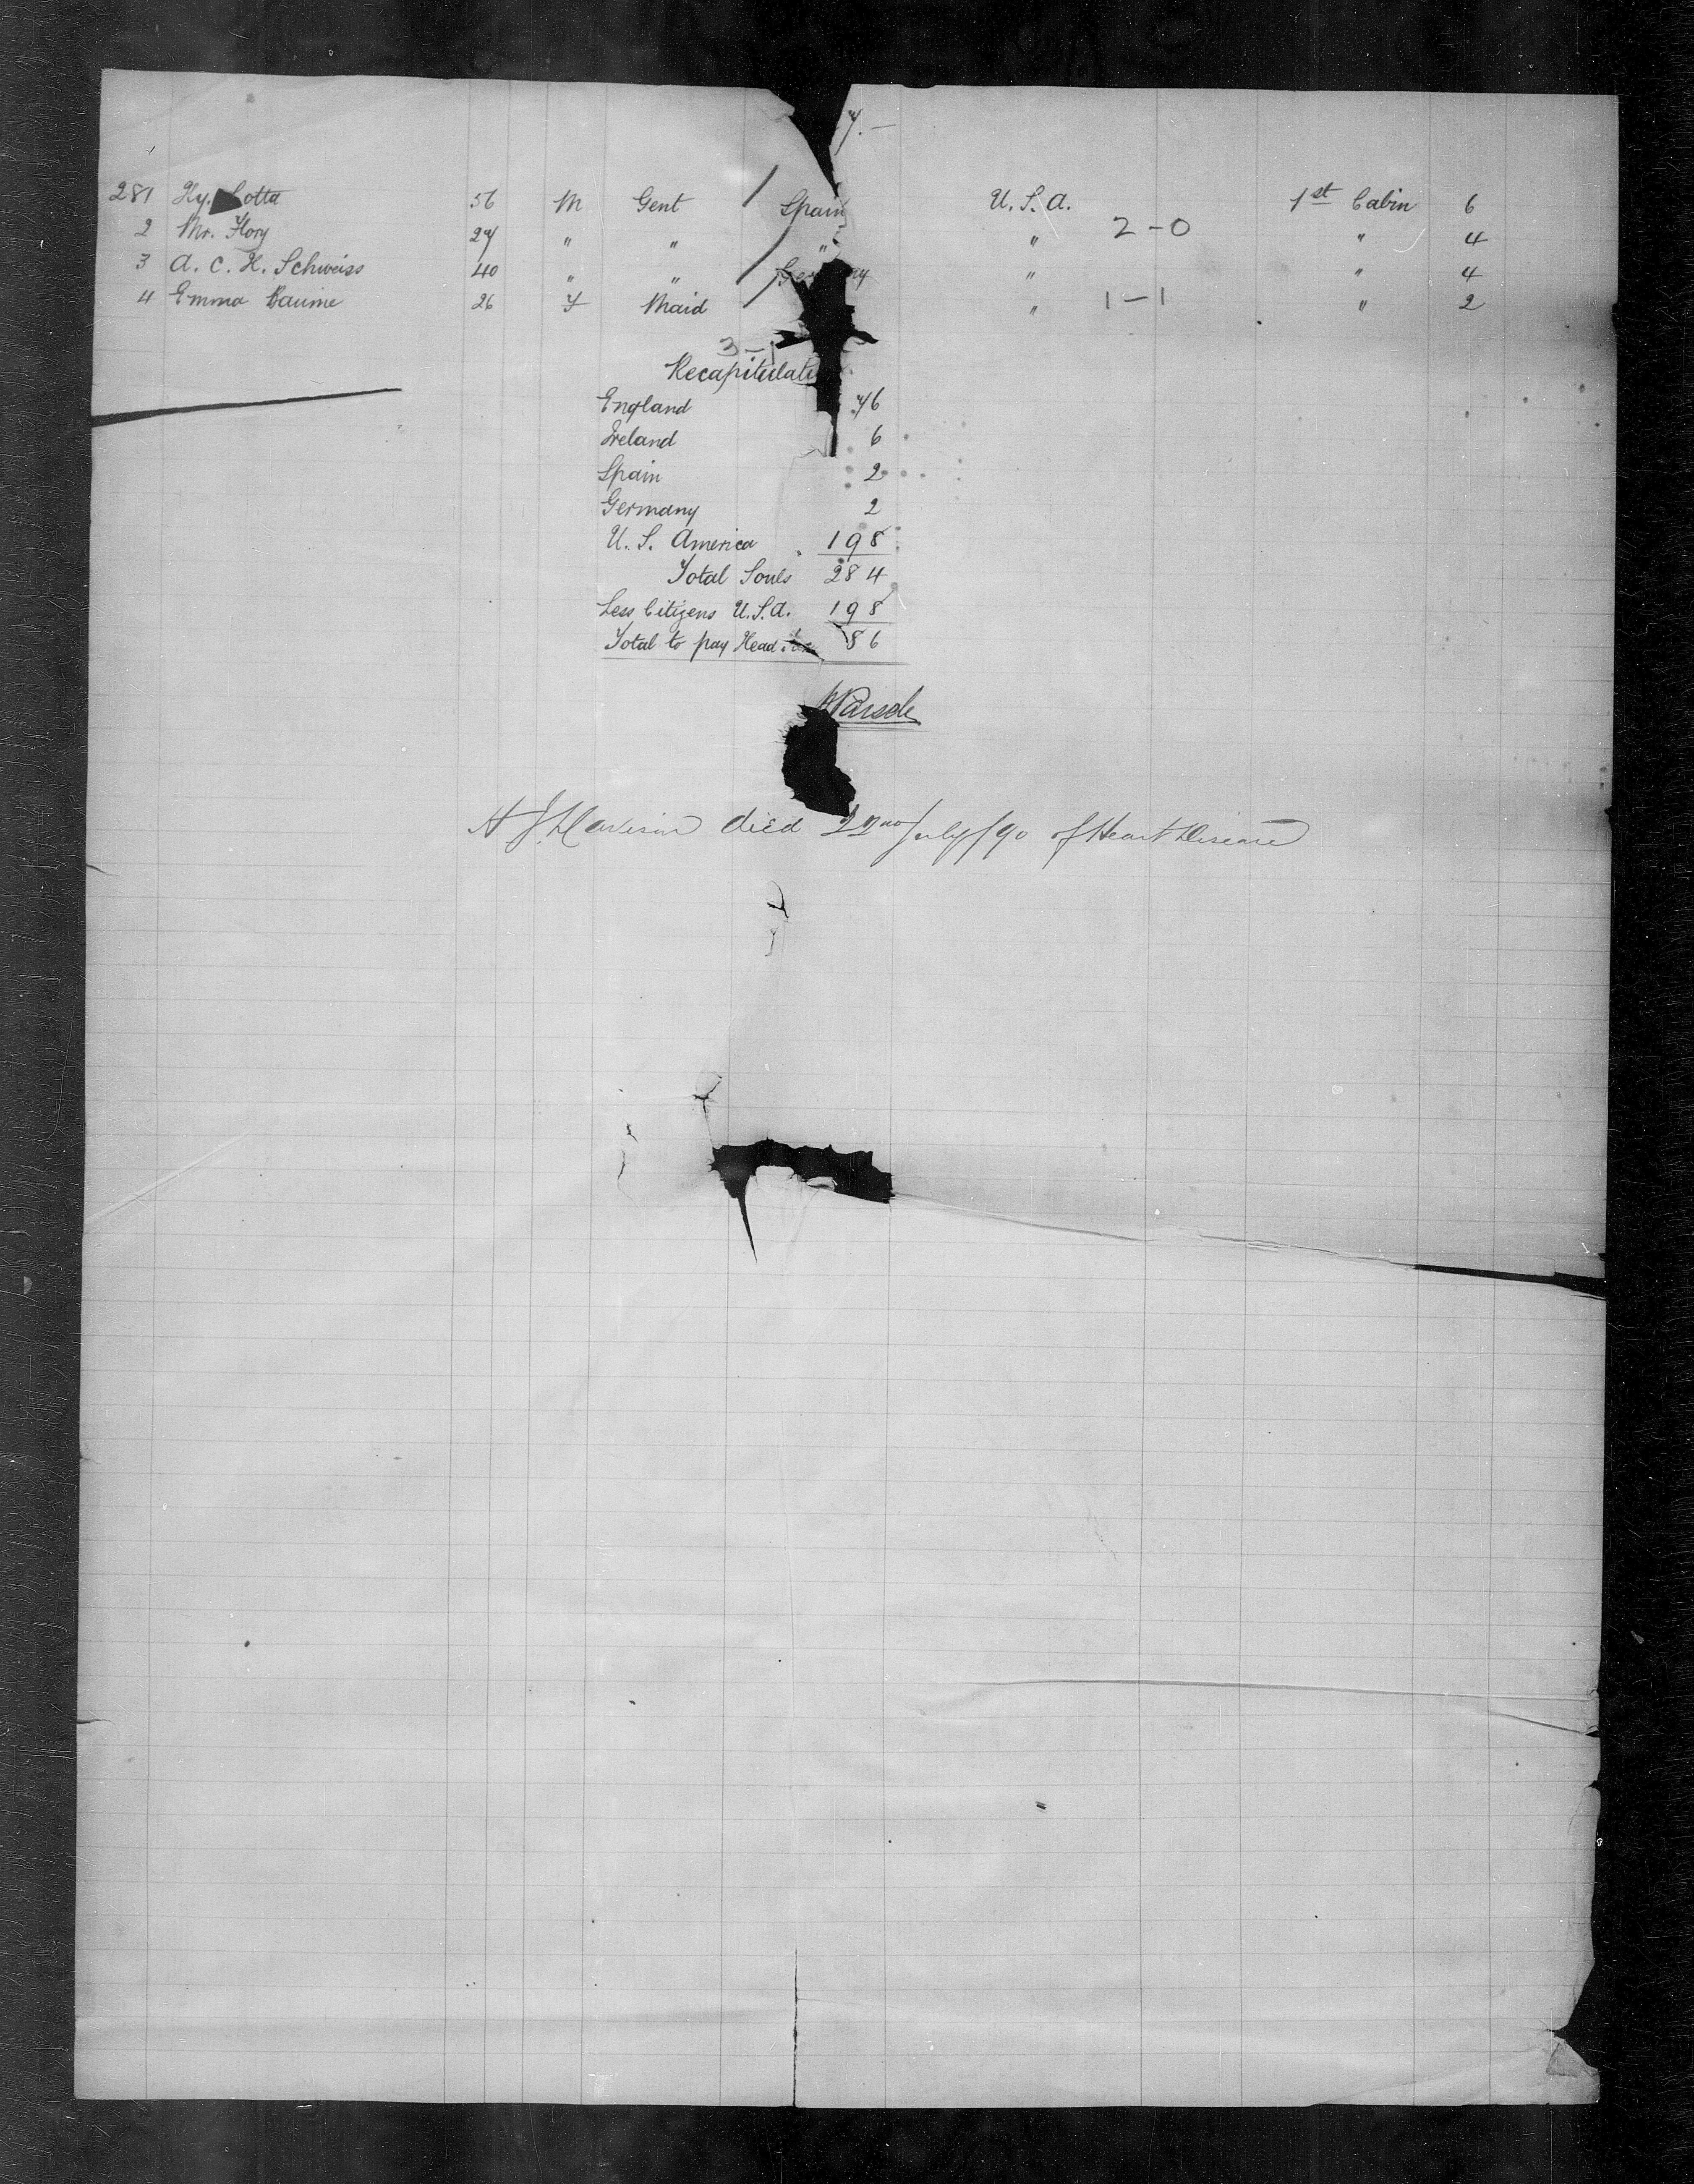 7. —
281 Hy. Lotta 56 M Gent / Spain U. S. A. 1st Cabin 6
2 Mr. Flory 27 " " / " " 2-0 " 4
3 A. C. H. Schweiss 40 " " / Germany " " 4
4 Emma Baume 26 F Maid " 1-1 " 2
3-1
Recapitulati
England 76
Ireland 6
Spain 2
Germany 2
U. S. America 198
Total Souls 284
Less Citizens U.S.A. 198
Total to pay Head tax 86
died 22nd July/90 of Heart Disease